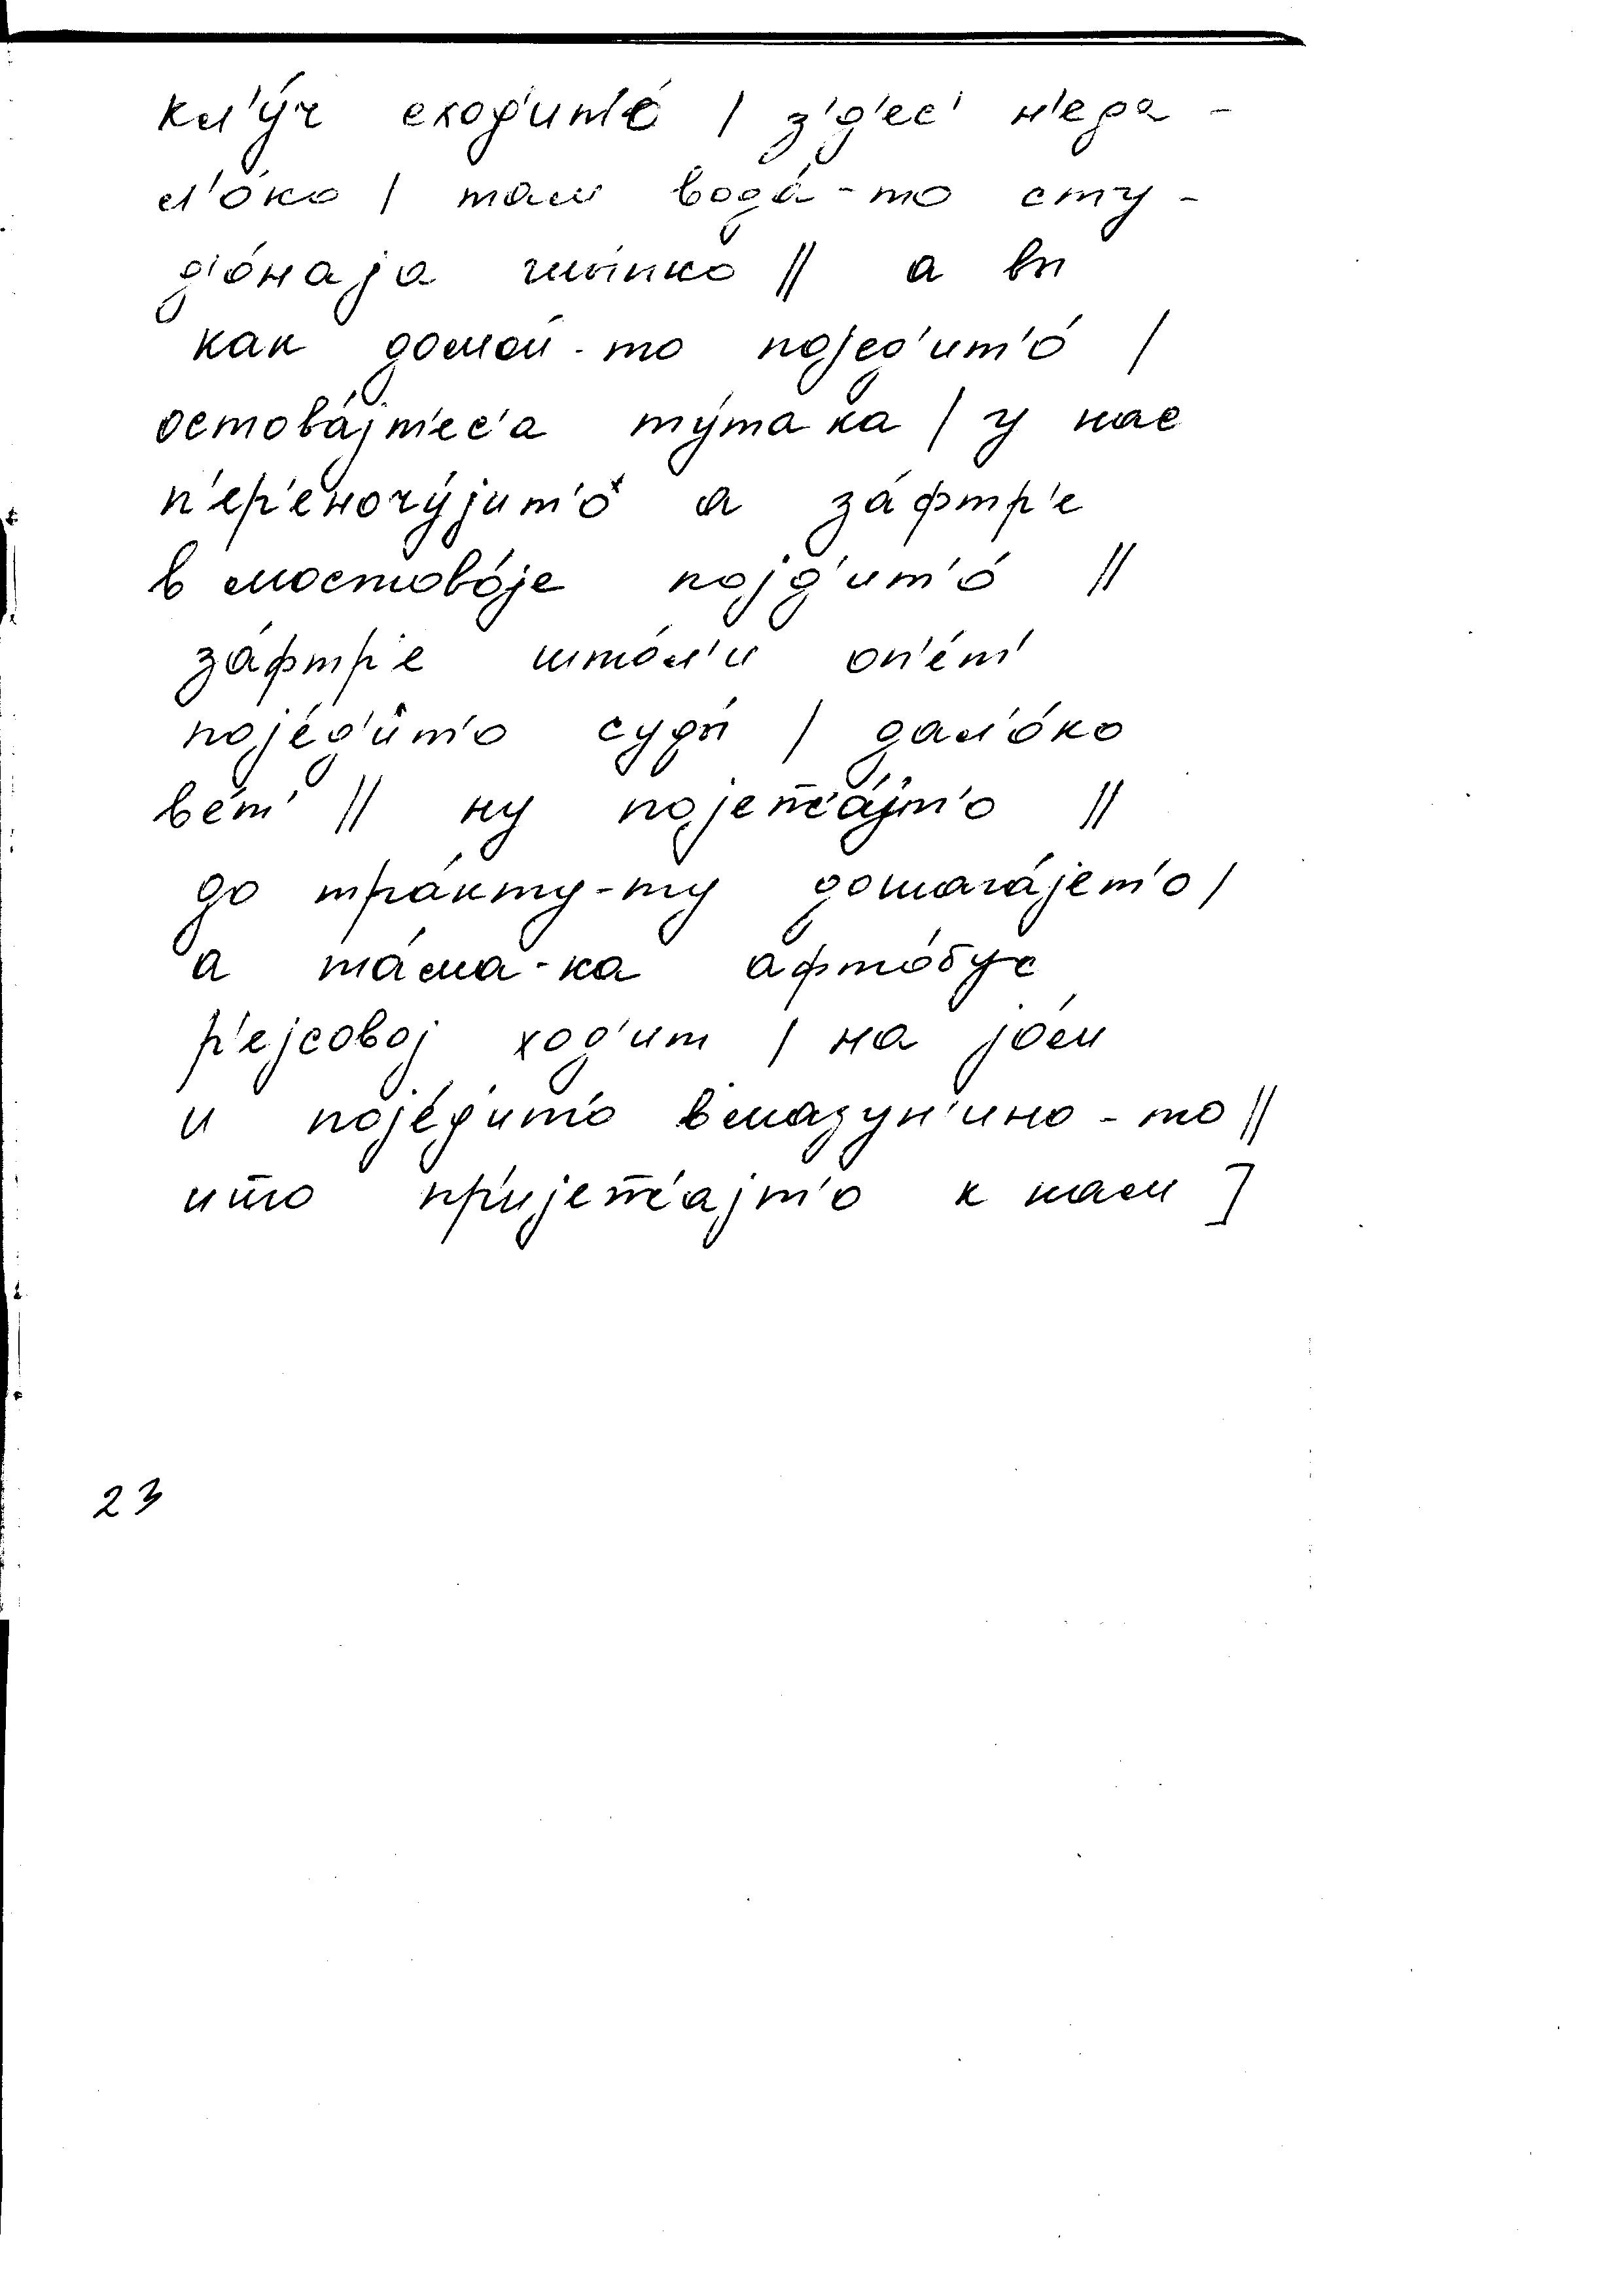 кл'у́ч сход'ит'о́ / з'д'ес' н'еда-
л'о́ко / там вода́-то сту-
д'о́наjа шы́пко // а вы
как домой-то поjед'ит'о́ /
остова́jт'ес'а ту́та ка / у нас
п'ер'еночу́jит'о а за́фтр'е
в мостово́jе поjд'ит'о́ //
за́фтр'е што́л'и оп'е́т'
поjе́д'ит'о суды́ / дал'о́ко
в'е́т' // ну поjежжа́jт'о //
до тра́кту-ту дошага́jет'о /
а та́ма-ка афто́бус
р'еjсовоj ход'ит / на jо́м
и поjе́дит'о в мазун'ино-то //
ишо пр'иjежжаjт'о к нам ]
23